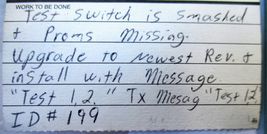 WORK TO BE DONE
Test Switch is Smashed
+ Proms Missing.
Upgrade to Newest Rev. +
install with Message.
"Test 1, 2." Tx Mesag "Test 1,2
ID # 199